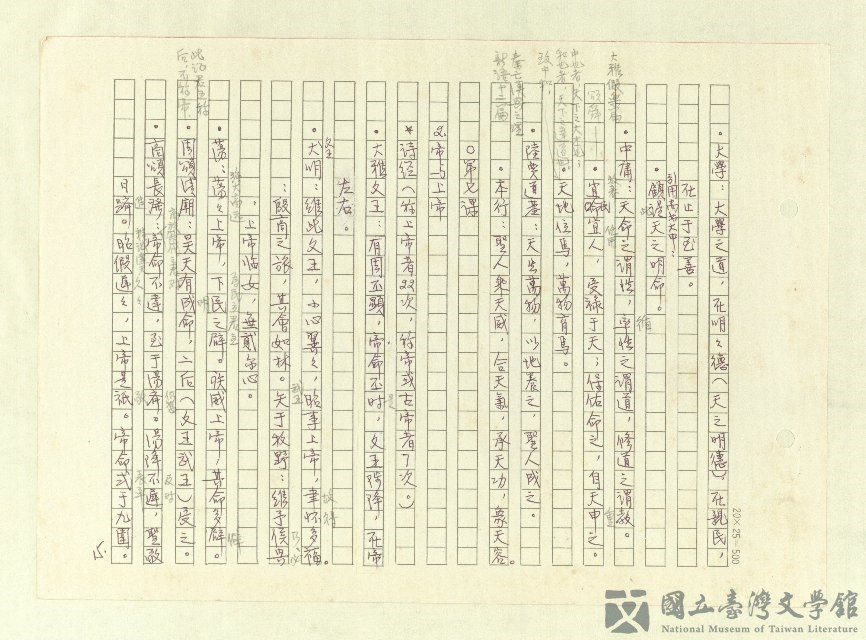 。大学：大学之道，在明明德（天之明德），在親民，
在止于至善。
引用書的大甲：
。顧諟天之明命。
。中庸：天命之謂性，率性之謂道，修道之謂教。
宜民宜人，受禄于天；保佑命之，自天申之。
。天地位焉，萬物育焉。
。陸賈道基：天生萬物，以地養之，聖人成之。
。本行：聖人乘天威，合天氣，承天功，象天容。
○第七課
又.帝与上帝
*诗经（称上帝者22次，称帝或古帝者了次。）
。大雅文王：有周丕顯，帝命丕时，文王陟降，在帝
左右。
。大明：維此文王，小心翼々，昭事上帝，聿怀多福。
：殷商之旅，其會如林。矢于牧野：維予侯興
，上帝临女，無貳尔心。
。蕩：蕩々上帝，下民之辟。疾威上帝，其命多辟。
。周頌清廟：昊天有成命，二后（文王武王）受之。
。商頌長發：帝命不違，至于湯齊。湯降不遲，聖敬
日躋。昭假遲々，上帝是祇。帝命式于九圍。
15.
20×25=500
國立臺灣文學館
National Museum of Taiwan Literature